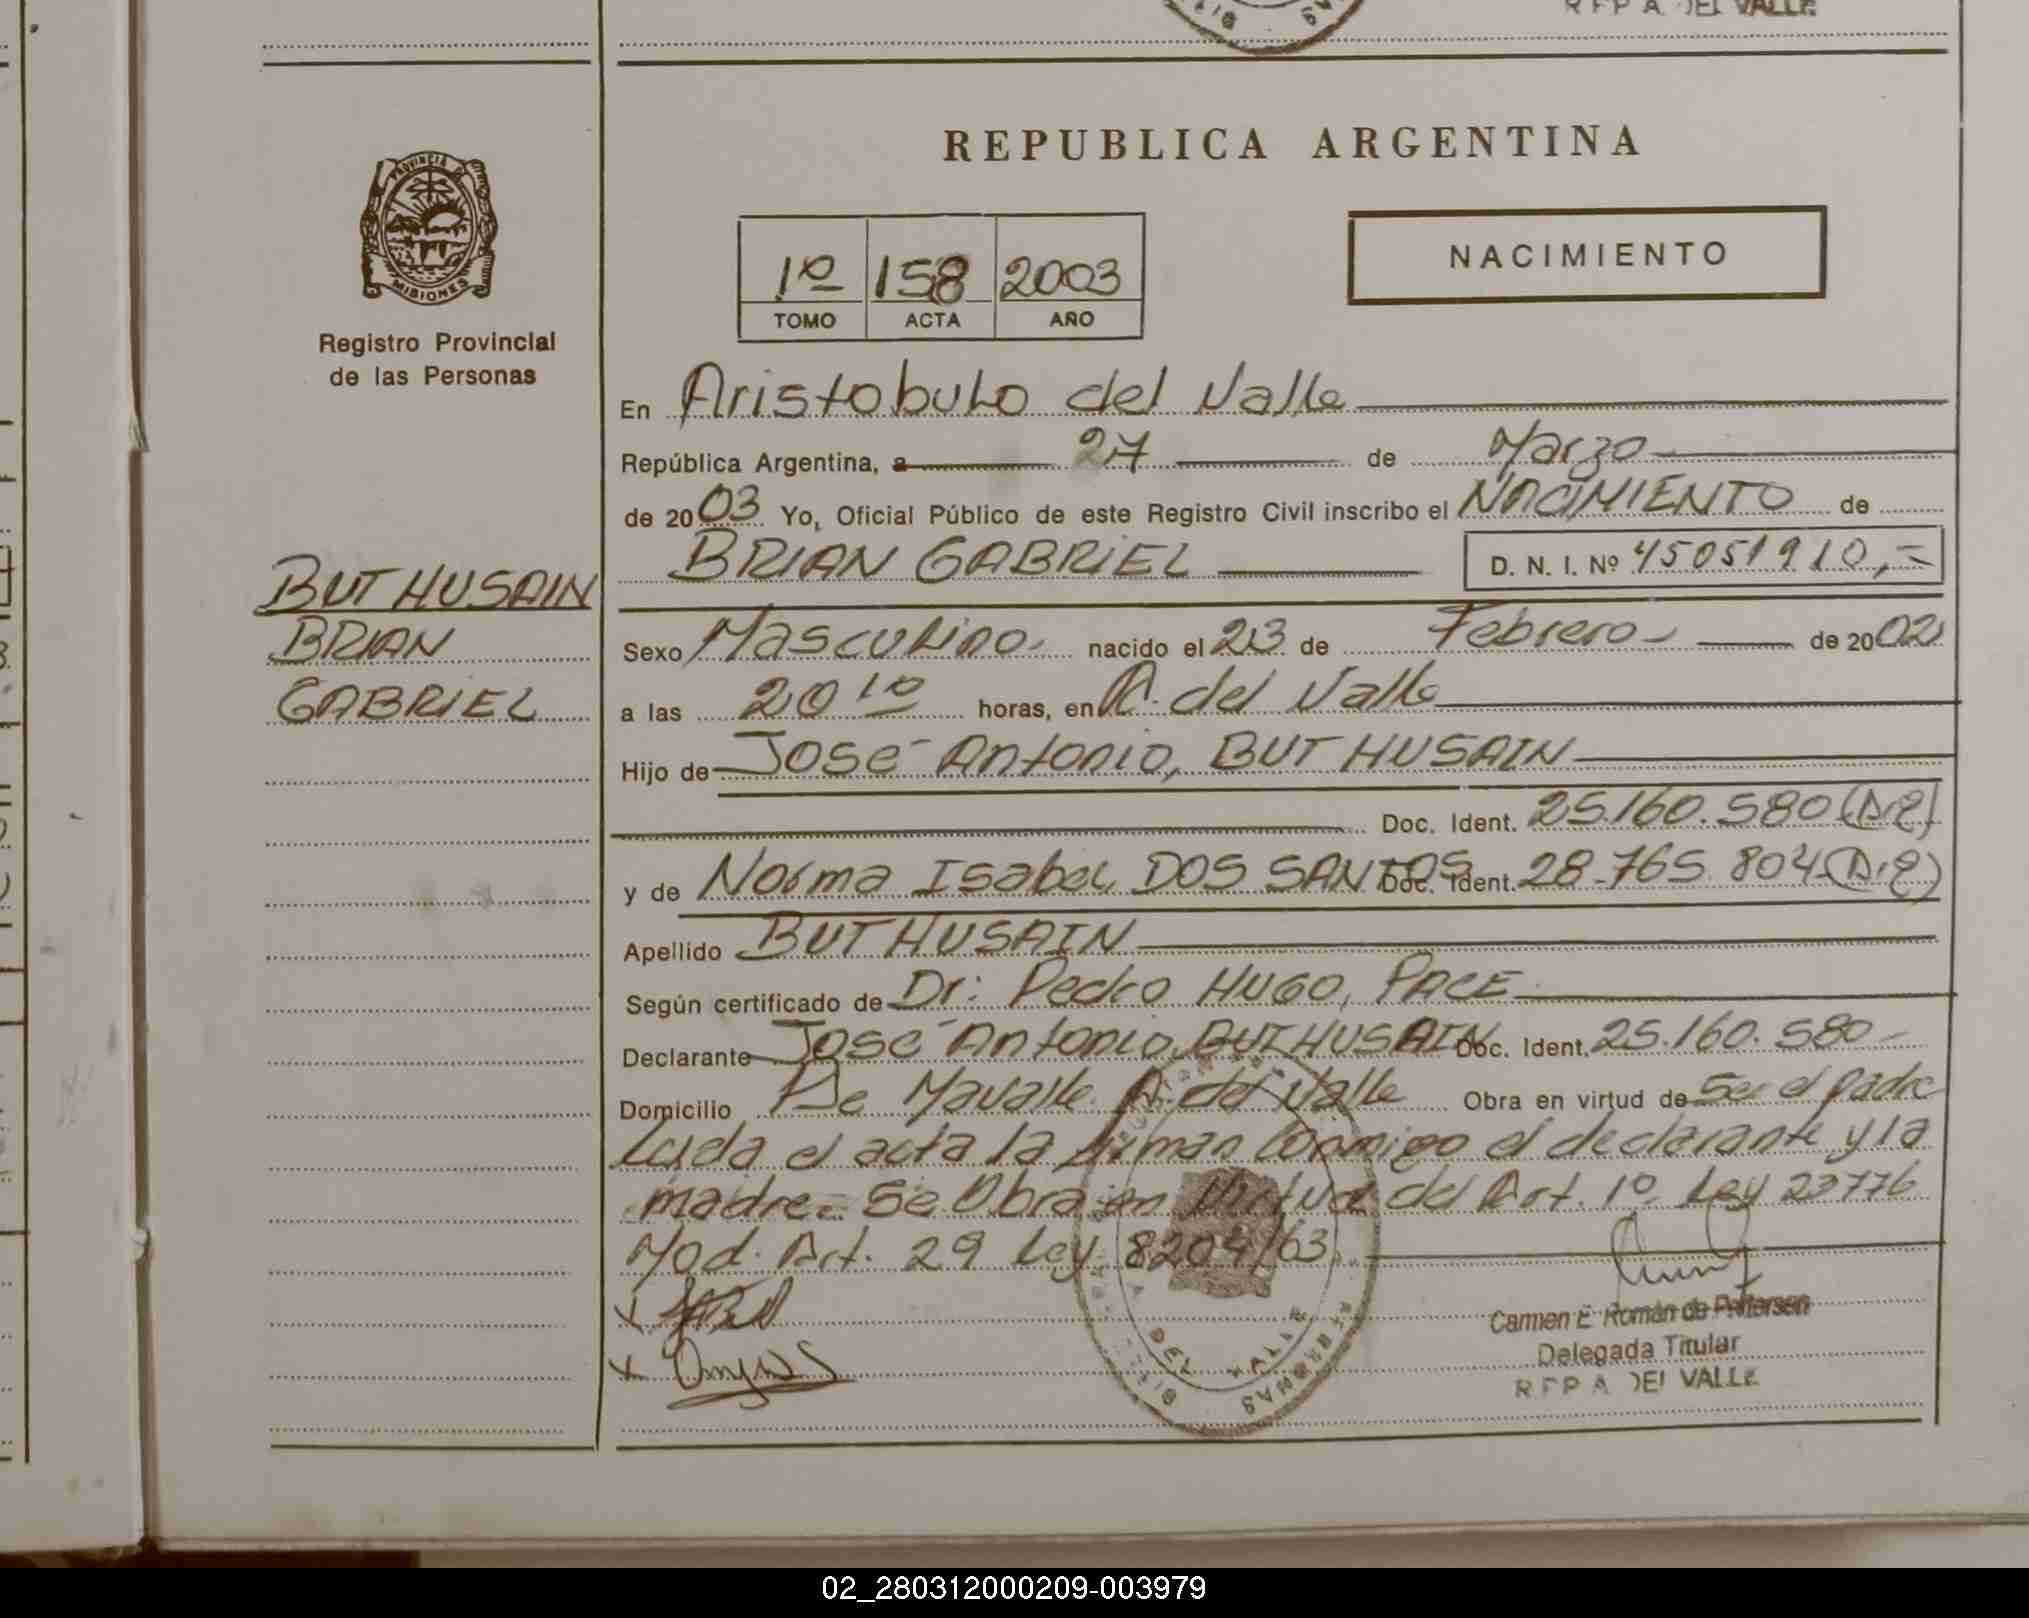 R F P A DEL VALLE
REPUBLICA ARGENTINA
PROVINCIA DE
MISIONES
Registro Provincial
de las Personas
1º 158 2003
TOMO ACTA AÑO
NACIMIENTO
En Aristobulo del Valle
República Argentina, a 27 de Marzo
de 2003 Yo, Oficial Público de este Registro Civil inscribo el NACIMIENTO de
BRIAN GABRIEL D. N. I. Nº 45051910,-
BUT HUSAIN
BRIAN
GABRIEL
Sexo Masculino nacido el 23 de Febrero de 2002
a las 20 10 horas, en A. del Valle
Hijo de José Antonio, BUT HUSAIN
Doc. Ident. 25.160.580
y de Norma Isabel DOS SANTOS Doc. Ident. 28.765.804
Apellido BUT HUSAIN
Según certificado de Dr: Pedro HUGO, PACE
Declarante José Antonio BUT HUSAIN Doc. Ident. 25.160.580-
Domicilio A. del Valle Obra en virtud de Ser el padre
Leida el acta la firman conmigo el declarante y la
madre.- Se Obra en Virtud del Art. 1º Ley 23776
Mod. Art. 29 Ley 8204/63
x
x
DEL VALLE
Carmen E. Román de Pettersen
Delegada Titular
R F P A DEL VALLE
02_280312000209-003979